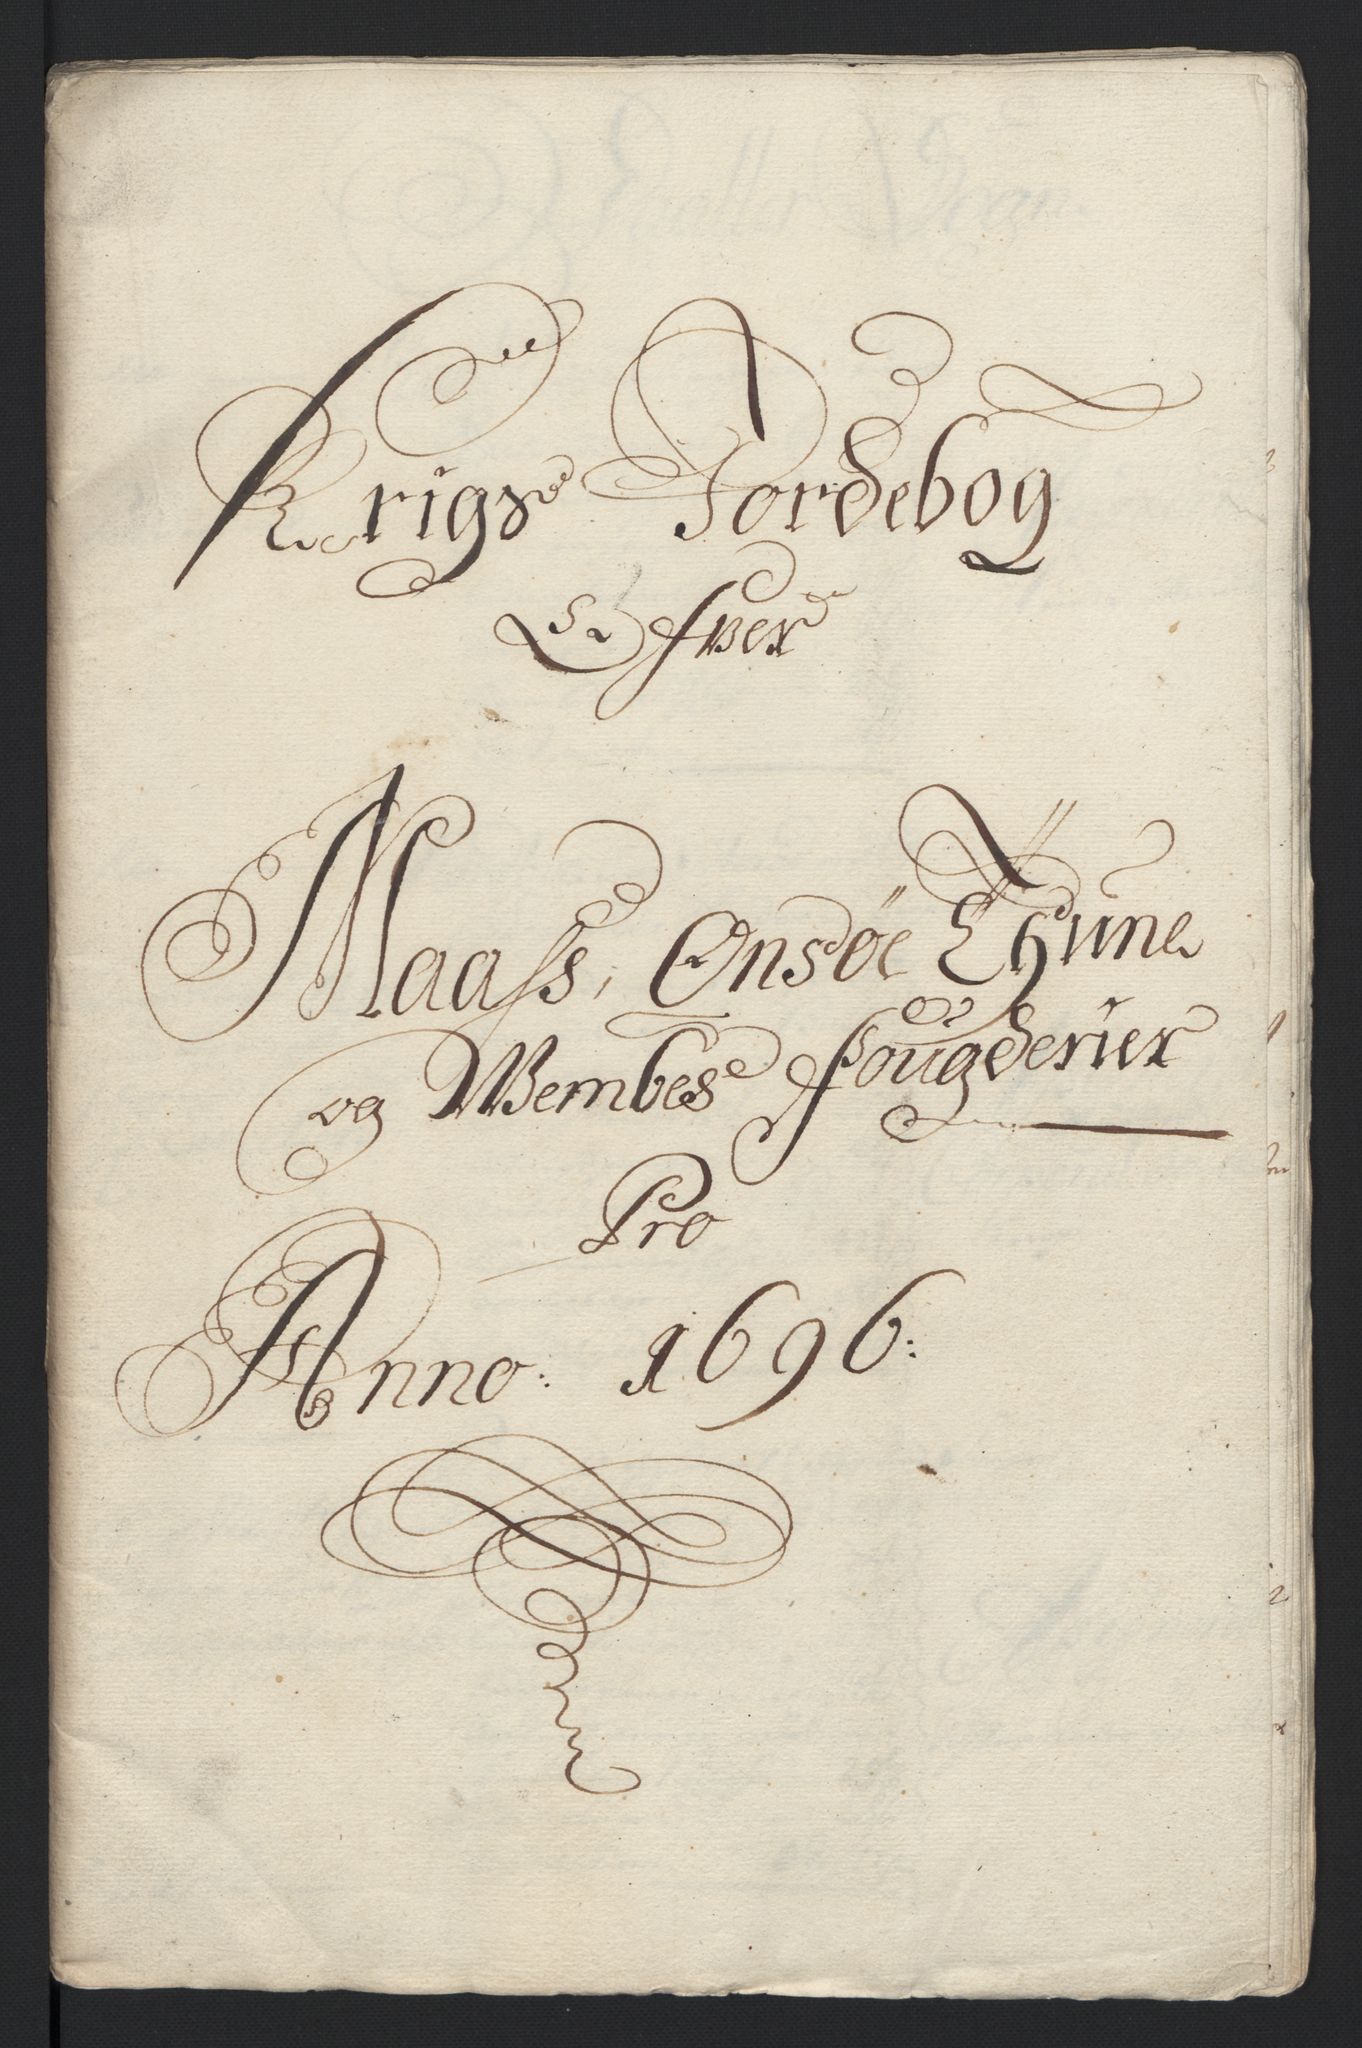 Krigs Jordebog
Ofver
Maass, Onsöe Thune
og Wembes fougderier
Pro
Anno: 1696: